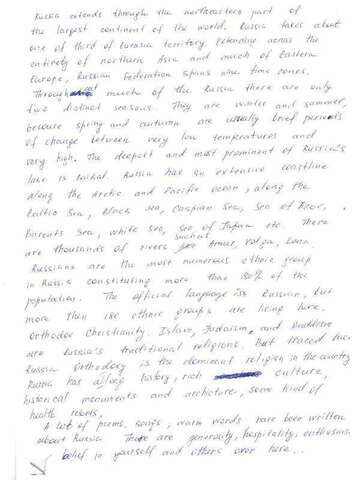 Russia extends through the northeastern part of
the largest continent of the world. Russia takes about
one of third of Eurasia territory. Extending across the
entirety of northern Asia and much of Eastern
Europe, Russian Federation spans nine time zones.
Throughout much of the Russia there are only
two distinct seasons. They are winter and summer,
because spring and autumn are usually brief periods
of change between very low temperatures and
very high. The deepest and most prominent of Russia's
lake is Baikal. Russia has an extensive coastline
along the Arctic and Pacific Ocean, along the
Baltic Sea, Black sea, Caspian Sea, Sea of Azov,
Barents Sea, white sea, sea of Japan etc. There
are thousands of rivers such as Amur, Volga, Lena.
Russians are the most numerous ethnic group
in Russia constituting more than 80% of the
population. The official language is Russian, but
more then 180 ethnic groups are living here.
Orthodox Christianity, Islam, Judaism, and Buddhism
are Russia's traditional religions. But
Russian Orthodoxy is the dominant religion in the country
Russia has a long history, rich culture,
historical monuments and some kind of
health resorts.
A lot of poems, songs, warm words have been written
about Russia There are generosity, hospitality, enthusiasm,
belief in yourself and others over here...